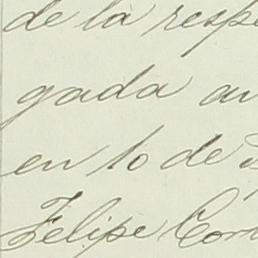 de la resp
gada au
en 10 de
Felipe Cor